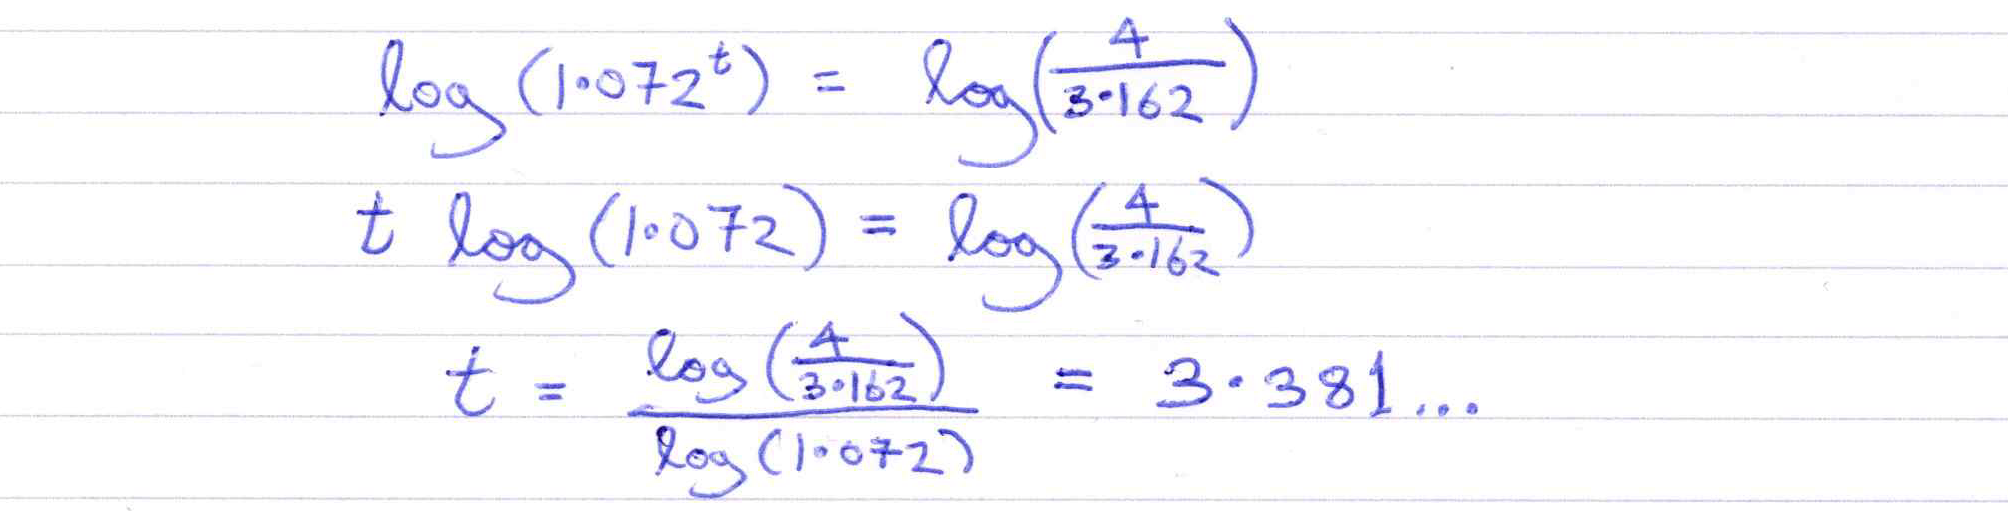 log (1·072^t) = log(4/3·162)
t log (1·072) = log(4/3·162)
t = log(4/3·162)/log(1·072) = 3·381...